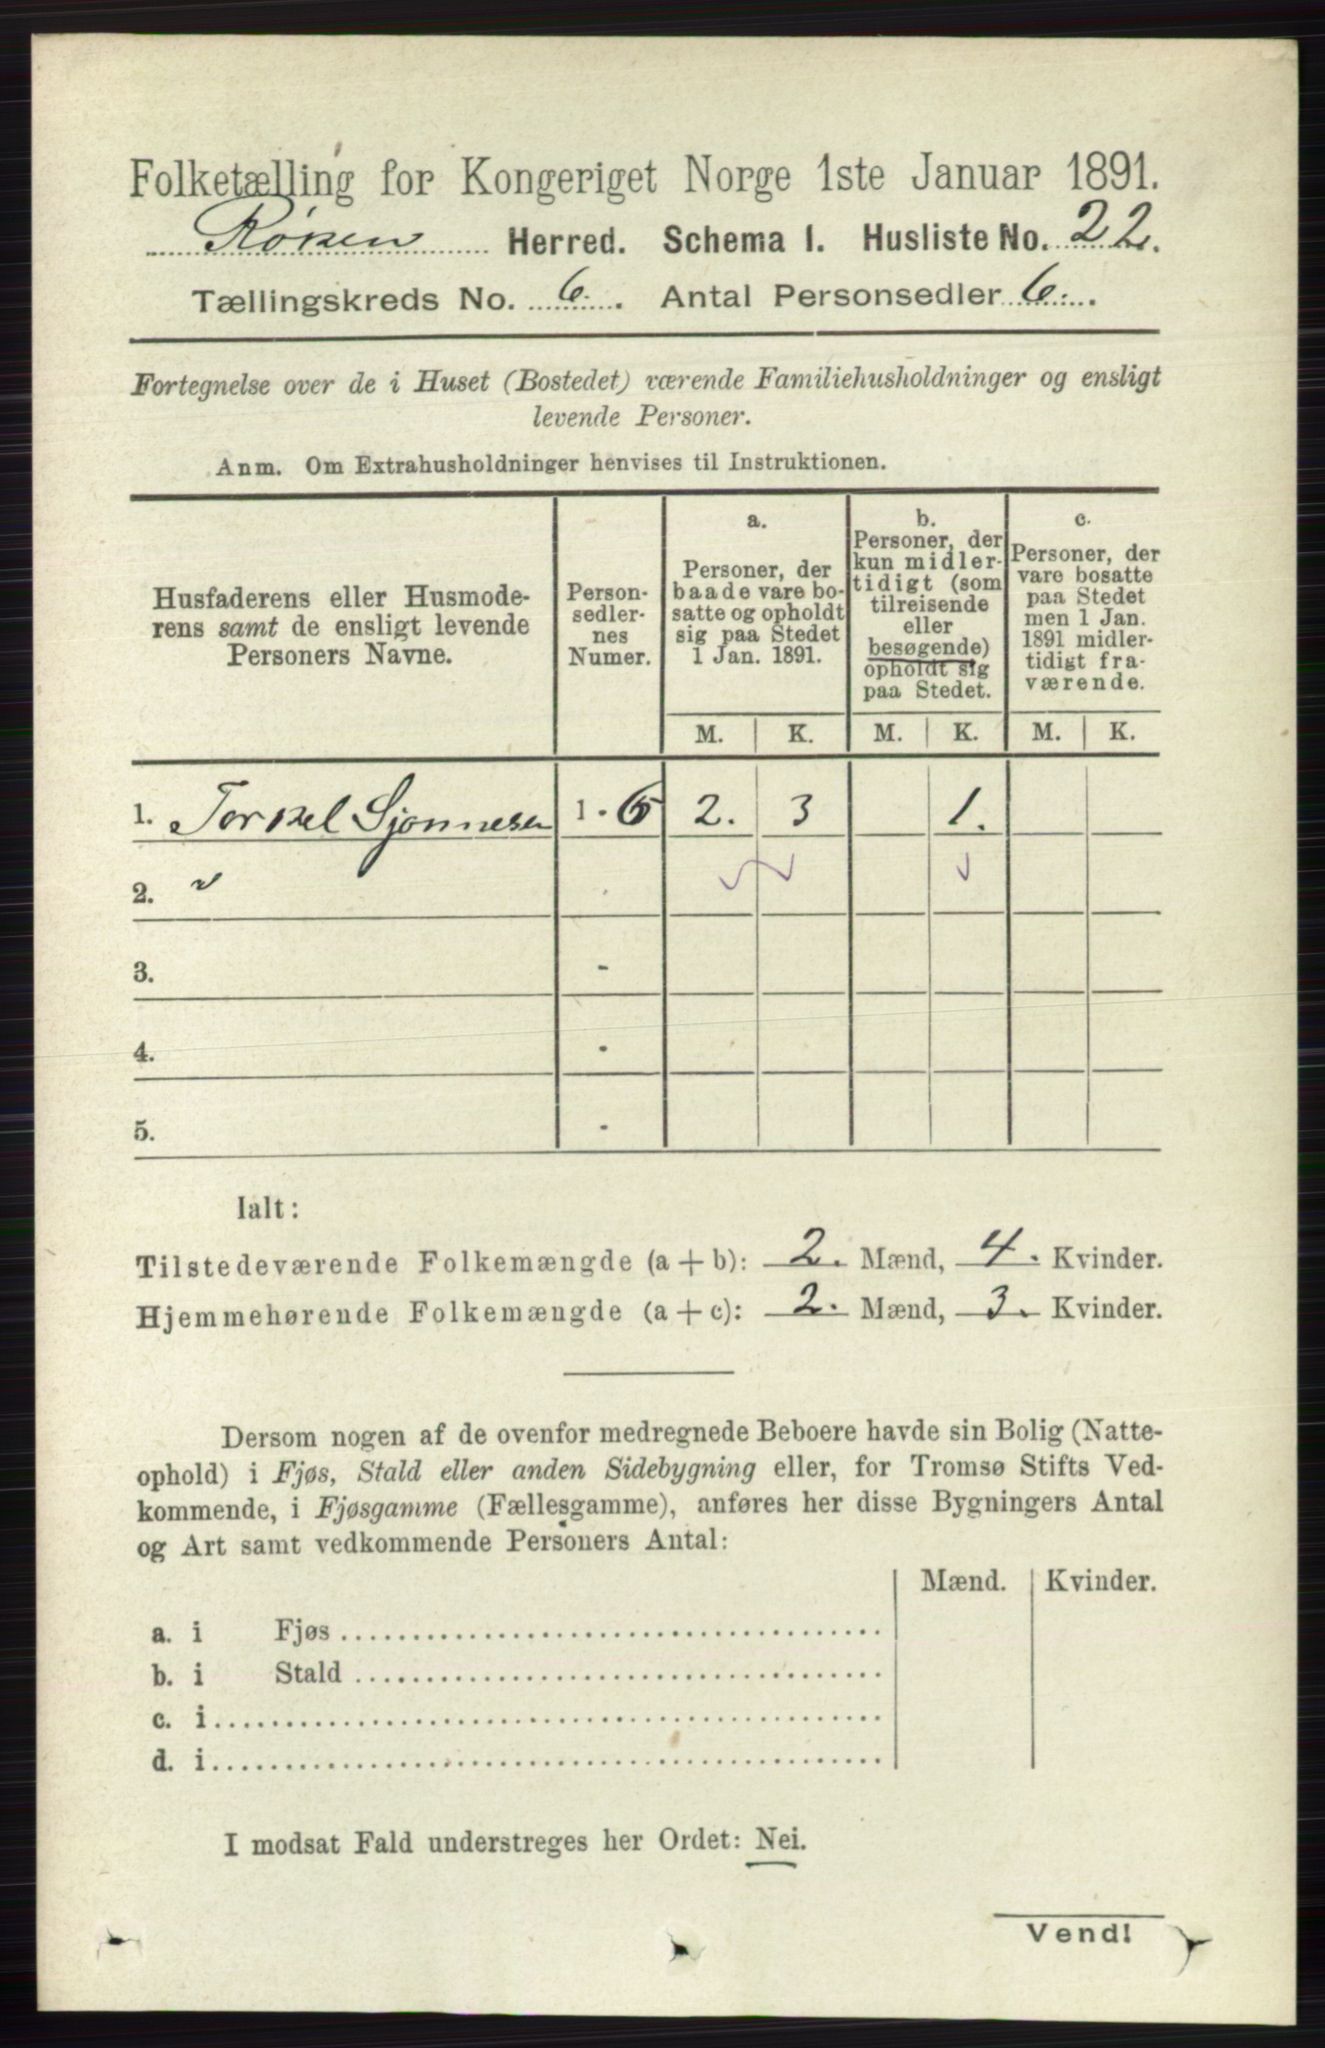 Folketælling for Kongeriget Norge 1ste Januar 1891.
Røken Herred. Schema 1. Husliste No. 22.
Tællingskreds No. 6. Antal Personsedler 6.
Fortegnelse over de i Huset (Bostedet) værende Familiehusholdninger og ensligt
levende Personer.
Anm. Om Extrahusholdninger henvises til Instruktionen.
Husfaderens eller Husmode-
rens samt de ensligt levende
Personers Navne.
Person-
sedler-
nes
Numer.
a.
Personer, der
baade vare bo-
satte og opholdt
sig paa Stedet
1 Jan. 1891.
b.
Personer, der
kun midler-
tidigt (som
tilreisende
eller
besøgende)
opholdt sig
paa Stedet.
c.
Personer, der
vare bosatte
paa Stedet
men 1 Jan.
1891 midler-
tidigt fra-
værende.
M. K. M. K. M. K.
1. Torkel Sjønnesen 1-6 2. 3 1.
2.
3. -
4. -
5. -
Ialt:
Tilstedeværende Folkemængde (a + b): 2. Mænd, 4. Kvinder.
Hjemmehørende Folkemængde (a + c): 2. Mænd, 3. Kvinder.
Dersom nogen af de ovenfor medregnede Beboere havde sin Bolig (Natte-
ophold) i Fjøs, Stald eller anden Sidebygning eller, for Tromsø Stifts Ved-
kommende, i Fjøsgamme (Fællesgamme), anføres her disse Bygningers Antal
og Art samt vedkommende Personers Antal:
Mænd. Kvinder.
a. i Fjøs
b. i Stald
c. i
d. i
I modsat Fald understreges her Ordet: Nei.
Vend!